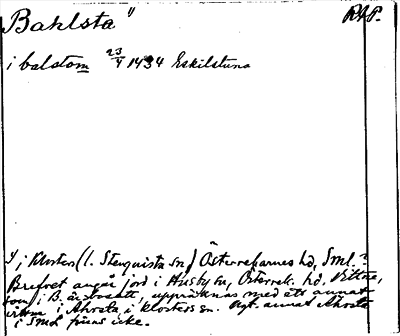 Bahlsta 1) RAP.
i balstom 23/4 1434 Eskilstuna
1) i Klosters (l. Stenquista sn) Österrekarnes hd, Sml.?
Brefvet angår jord i Husby sn, Österrek. hd. Vittne,
som i B. är bosatt, uppräknas med ett annat
vittne i Åhrsta, i Klosters sn. Ngt. annat Åhrsta
i Sml finns icke.